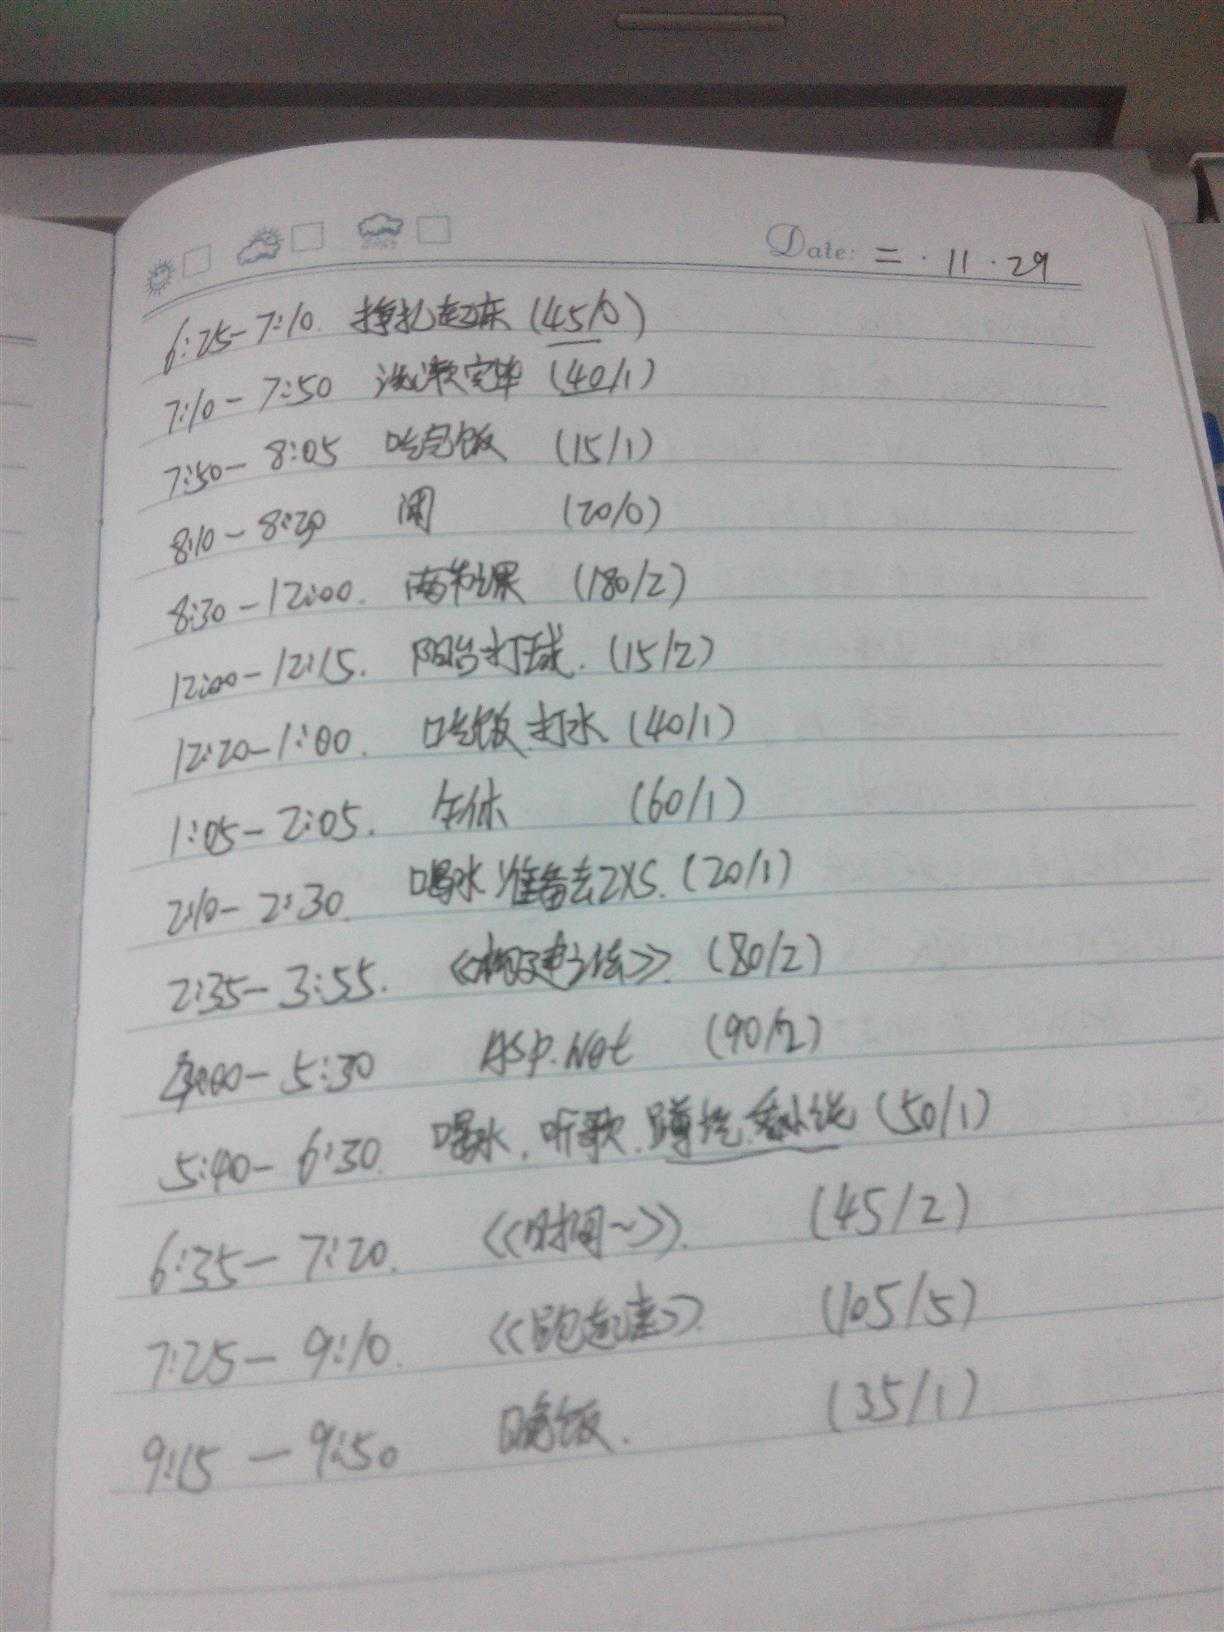 Date: 二 · 11 · 29
6:25-7:10. 挣扎起床 (45/0)
7:10-7:50 洗漱完毕 (40/1)
7:50-8:05 吃完饭 (15/1)
8:10-8:30 闲 (20/0)
8:30-12:00. 两节课 (180/2)
12:00-12:15. 阳台打球. (15/2)
12:20-1:00. 吃饭.打水 (40/1)
1:05-2:05. 午休 (60/1)
2:10-2:30. 喝水 准备去ZXS. (20/1)
2:35-3:55. 《构建之法》. (80/2)
4:00-5:30 ASP.Net (90/2)
5:40-6:30. 喝水.听歌.蹲坑.看小说 (50/1)
6:35-7:20. 《时间~》. (45/2)
7:25-9:10. 《跑起来》. (105/5)
9:15-9:50 晚饭. (35/1)